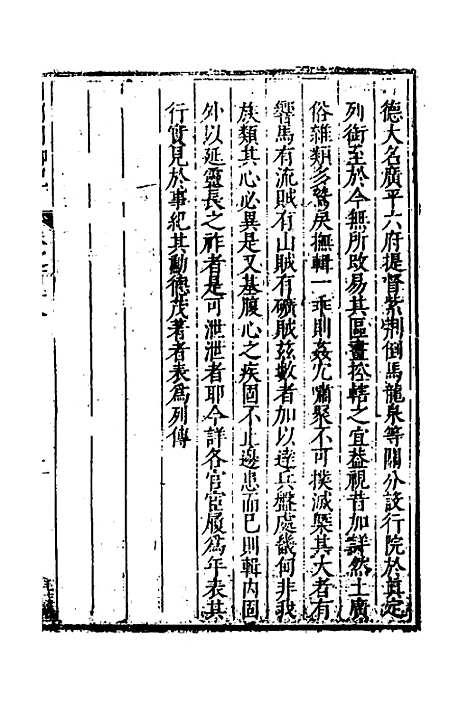 德大名廣平六府提督紫荆倒馬龍泉等關分設行院於真定
列銜至於今無所改易其區畫控轄之宜益視昔加詳然土廣
俗雜類多驁戾撫輯一乖則姦宄嘯聚不可撲滅槩其大者有
響馬有流賊有山賊有礦賊茲數者加以逹兵盤處畿何非我
族類其心必異是又基腹心之疾固不止邊患而已則輯内固
外以延靈長之祚者是可泄泄者耶今詳各官宦履爲年表其
行實見於事紀其勳德茂著者表爲列傳